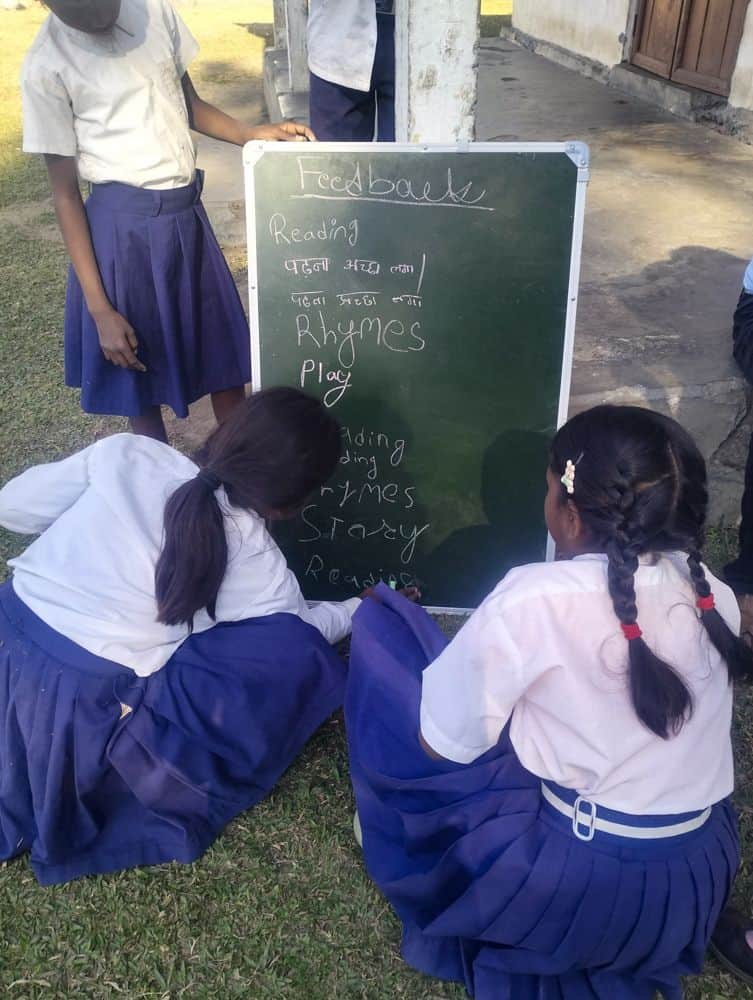 Feedback
Reading
पढ़ना अच्छा लगा।
पढ़ना अच्छा लगा
Rhymes
Play
ading
ding
hymes
Story
Reading